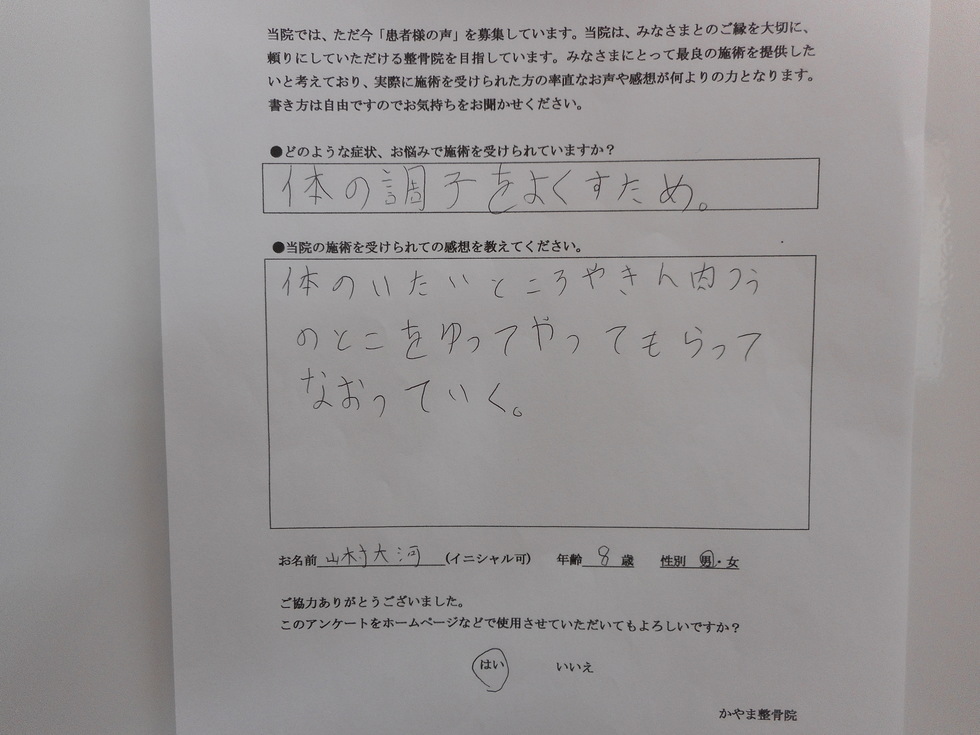 当院では、ただ今「患者様の声」を募集しています。当院は、みなさまとのご縁を大切に、
頼りにしていただける整骨院を目指しています。みなさまにとって最良の施術を提供した
いと考えており、実際に施術を受けられた方の率直なお声や感想が何よりの力となります。
書き方は自由ですのでお気持ちをお聞かせください。
●どのような症状、お悩みで施術を受けられていますか？
体の調子をよくすため。
●当院の施術を受けられての感想を教えてください。
体のいたいところやきん肉つう
のとこをゆってやってもらって
なおっていく。
お名前 山村大河 (イニシャル可) 年齢 8 歳 性別 男・女
ご協力ありがとうございました。
このアンケートをホームページなどで使用させていただいてもよろしいですか？
はい いいえ
かやま整骨院